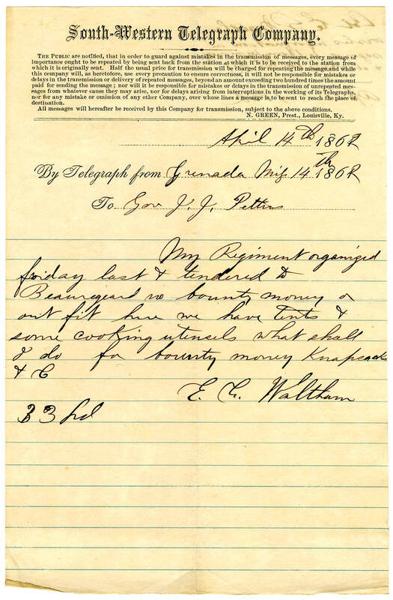 South-Western Telegraph Company.
THE PUBLIC are notified, that in order to guard against mistakes in the transmission of messages, every message of
importance ought to be repeated by being sent back from the station at which it is to be received to the station from
which it is originally sent. Half the usual price for transmission will be charged for repeating the message, and while
this company will, as heretofore, use every precaution to ensure correctness, it will not be responsible for mistakes or
delays in the transmission or delivery of repeated messages, beyond an amount exceeding two hundred times the amount
paid for sending the message; nor will it be responsible for mistakes or delays in the transmission of unrepeated mes-
sages from whatever cause they may arise, nor for delays arising from interruptions in the working of its Telegraphs,
nor for any mistake or omission of any other Company, over whose lines a message is to be sent to reach the place of
destination.
All messages will hereafter be received by this Company for transmission, subject to the above conditions.
N. GREEN, Prest., Louisville, Ky.
April 14th 1862
By Telegraph from Grenada 14th 1862
To Gov J. J. Pettus
My Regiment organized
friday last & tendered to
Beauregard no bounty money or
out fit here we have tents &
some cooking utensels what shall
I do for bounty money Knapsacks
& C
E. C. Waltham
33 pd